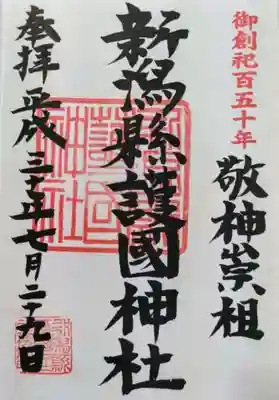 御創祀百五十年
敬神崇祖
新潟縣護國神社
奉拜 平成三十年七月二十九日